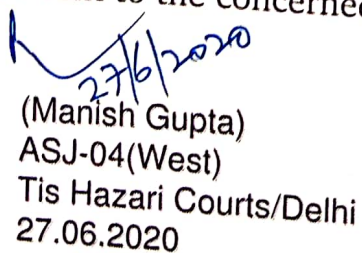 to the concerned
27/6/2020
(Manish Gupta)
ASJ-04(West)
Tis Hazari Courts/Delhi
27.06.2020